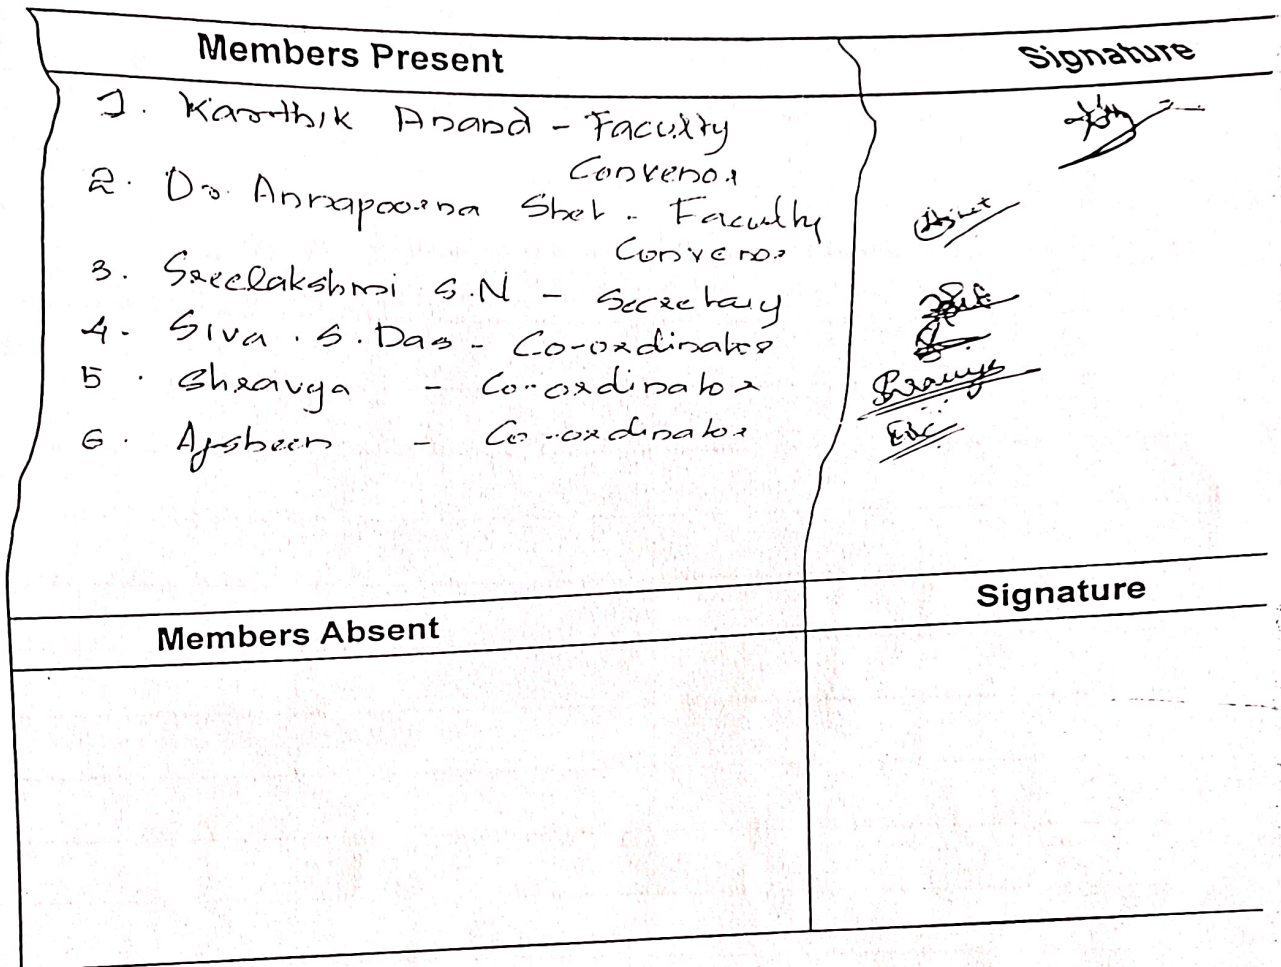 Members Present
Signature
1. Karthik Anand - Faculty
Convenor
2. Dr. Annapoorna Shet - Faculty
Convenor
3. Sreelakshmi S.N - Secretary
4. Siva . S. Das - Co-ordinator
5. Shravya - Co-ordinator
Shravya
6. - Co-ordinator
Members Absent
Signature